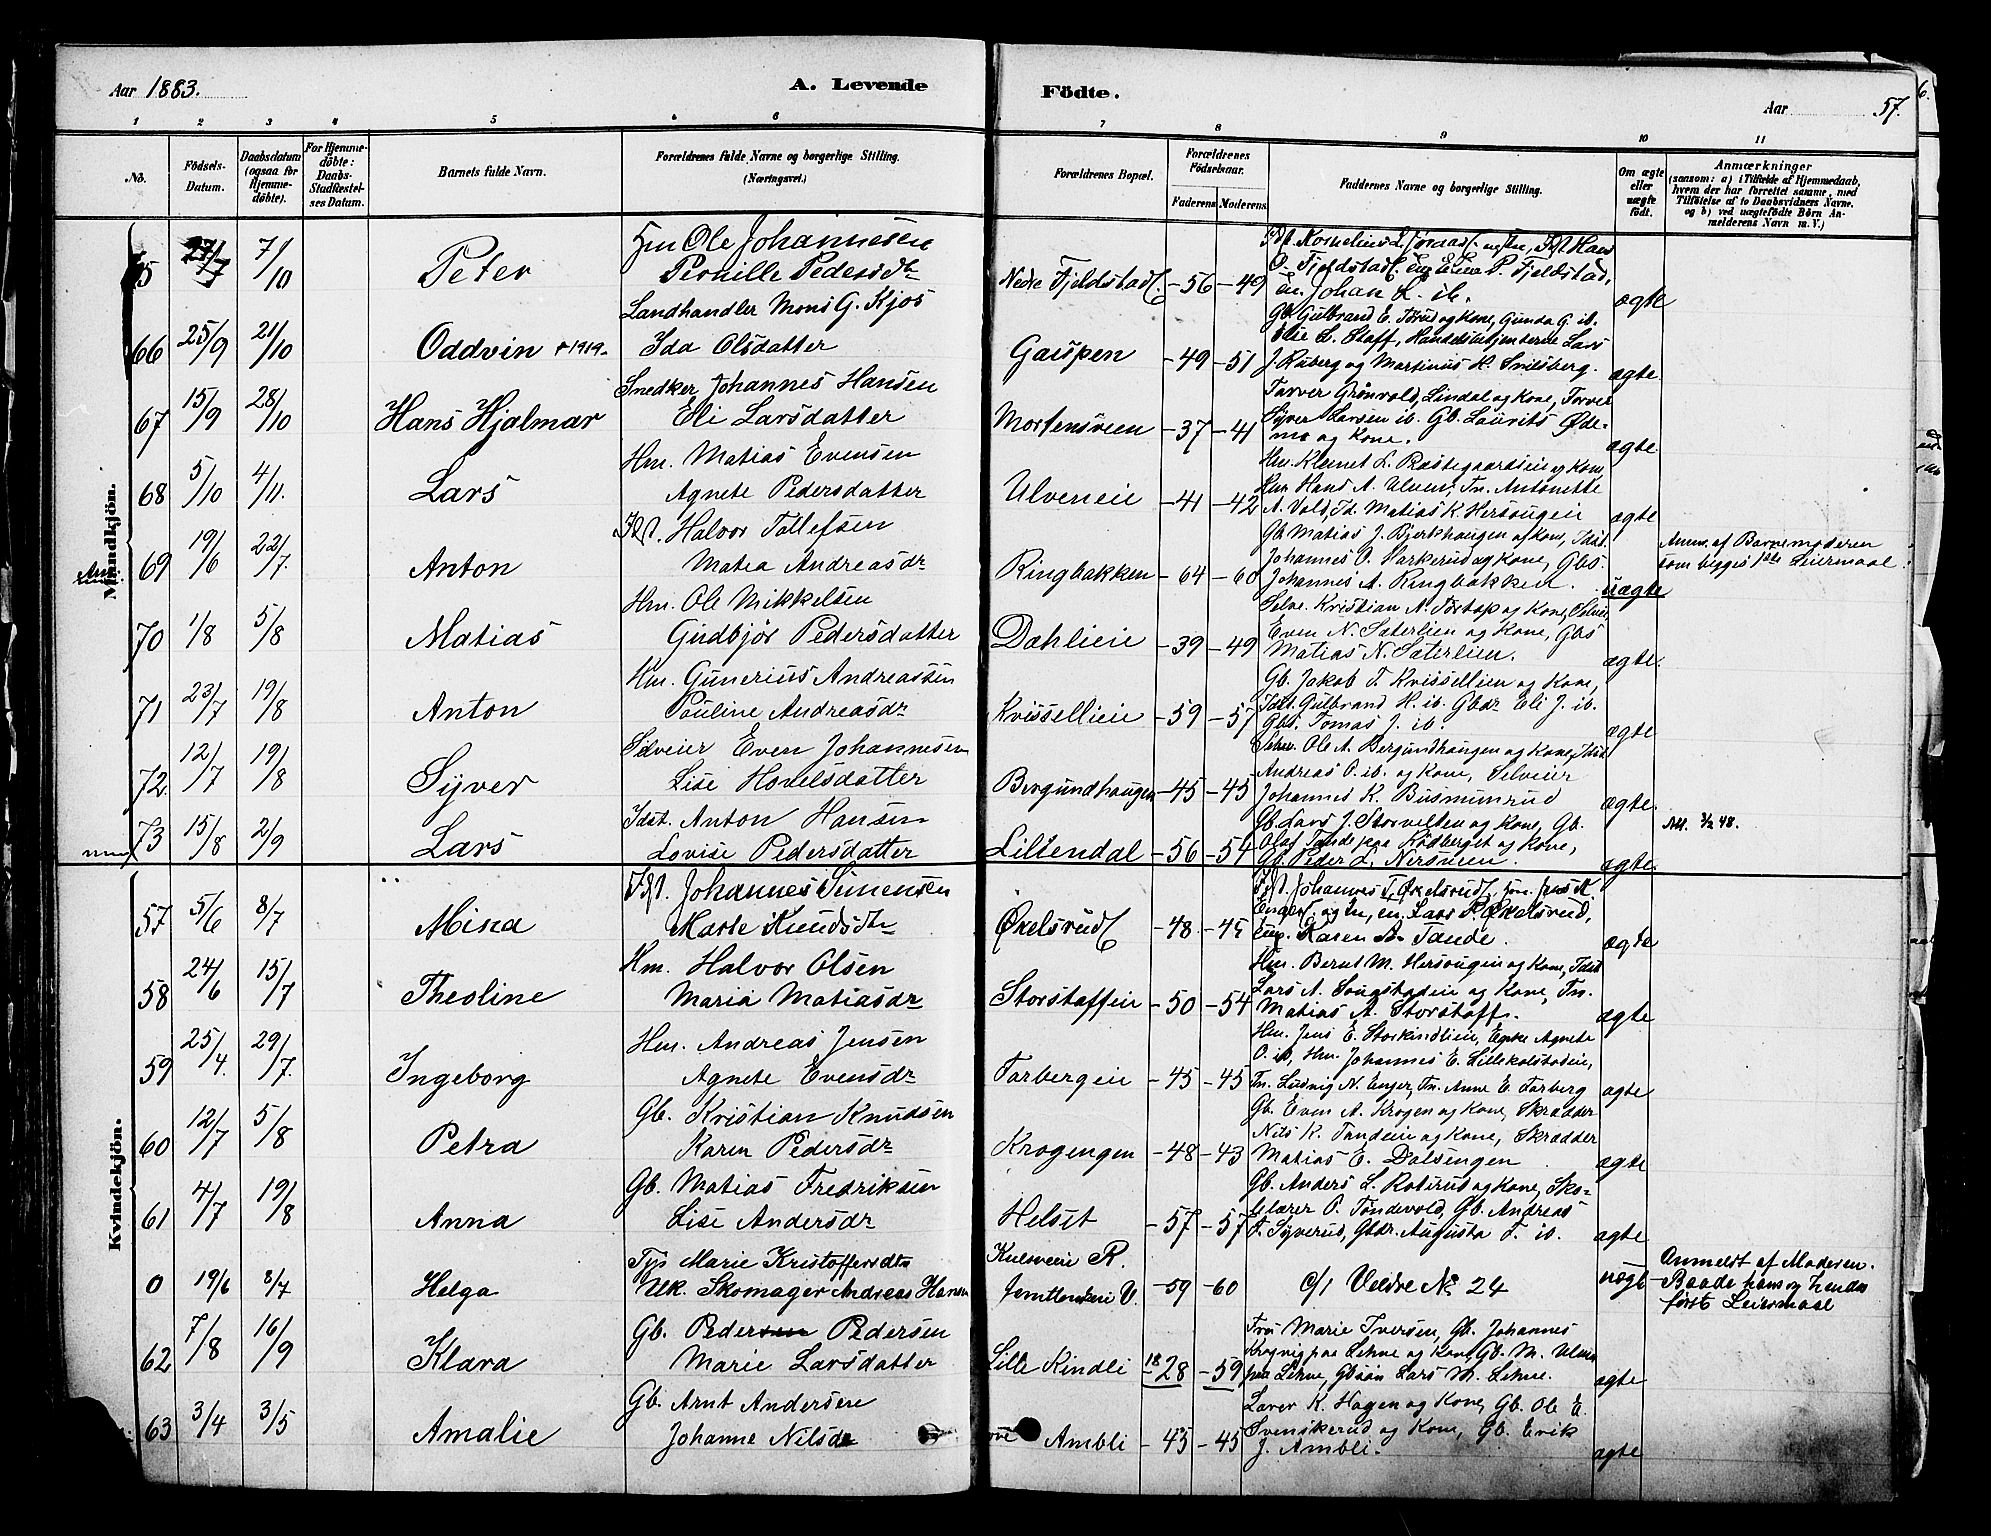 Aar 1883.
A. Levende Födte.
Aar 57.
1 2 3 4 5 6 7 8 9 10 11
No.
Födsels-Datum.
Daabsdatum (ogsaa for Hjemmedöbte).
For Hjemmedöbte: Daabs-Stadfæstelses Datum.
Barnets fulde Navn.
Forældrenes fulde Navne og borgerlige Stilling.
(Næringsvei.)
Forældrenes Bopæl.
Forældrenes Födselsaar.
Faderens Moderens
Faddernes Navne og borgerlige Stilling.
Om ægte eller uægte födt.
Anmærkninger
(saasom: a) i Tilfælde af Hjemmedaab, hvem der har forrettet samme, med Tilföielse af to Daabsvidners Navne, og b) ved uægtefödte Börn Anmelderens Navn m. V.)
Mandkjön.
65 27/7 7/10 Peter
Hm Ole Johannesen
Pernille Pedersdtr
Nedre Fjeldstad -56 -49
O. Fjeldstad P. Fjeldstad,
Johan L. ib.
ægte
66 25/9 21/10 Oddvin +1919.
Landhandler Mons G. Kjos
Ida Olsdatter
Gaispen -49 -51
Gb Gulbrand E. Törud og Kone, Gunda G. ib.
Elise L. Staff, Handelsbetjenterne Lars
J. Ruberg og Martinus K. Smilsberg.
ægte
67 15/9 28/10 Hans Hjalmar
Snedker Johannes Hansen
Eli Larsdatter
Mortensveen -37 -41
Farver Grönvold, Lindal og Kone, Farver
Syver Larsen ib. Gb. Laurits Øde-
mo og Kone.
ægte
68 5/10 4/11. Lars
Hm. Matias Evensen
Agnete Pedersdatter
Ulveneie -41 -42
Hm. Klemet L. og Kone
Hm Hans A. Ulven, Tn. Antonette
A. Vold, Matias K. Hersougen
ægte
69 19/6 22/7. Anton
Halvor Tollefsen
Matea Andreasdr
Ringbakken -64 -60
Gb Matias J. Bjerkhaugen og Kone, Idst.
Johannes O. Sarkerud og Kone, Gbs.
Johannes A. Ringbakken.
uægte
Anm. af Barnemoderen
som begges 1ste Leiermaal.
70 1/8 5/8 Matias
Hm. Ole Mikkelsen
Gudbjör Pedersdatter
Dahlieie -39 -49
Selve. Kristian N. Törtop og Kone, Selveier
Even N. Sæterlien og Kone, Gbs
Matias N. Sæterlien.
ægte.
71 23/7 19/8 Anton
Hm. Gunerius Andreassen
Pauline Andreasdr
Kvissellieie -59 -57
Gb. Jakob T. Kvissellien og Kone,
Idst. Gulbrand H. ib. Gbdr Eli J. ib.
Gbs. Tomas J. ib.
ægte
72 12/7 19/8 Syver
Selveier Even Johannesen
Lise Hovelsdatter
Bergundhaugen -45 -45
Selv. Ole A. Bergundhaugen og Kone, Idst
Andreas O. ib. og Kone, Selveier
Johannes K. Busmunrud
ægte.
73 15/8 2/9 Lars
Idst. Anton Hansen
Lovise Pedersdatter
Liltendal -56 -54
Gb. Lars J. Storvelten og Kone, Gb.
Olaf Tande paa Rödberget og Kone,
Gb. Peder L. Nersveen.
ægte
Att. 3/2 48.
Kvindekjön.
57 5/6 8/7 Mina
Johannes Simensen
Marte Knudsdtr
Økelsrud -48 -45
Johannes T. Økelsrud,
Lars P. Økelsrud,
Karen A. Tande.
ægte
58 24/6 15/7 Theoline
Hm. Halvor Olsen
Maria Matiasdr
Storstaffeie -50 -54
Hm. Bernt M. Hersougen og Kone, Idst
Lars A. Sougstadeie og Kone, Tn.
Matias A. Storstaff.
ægte
59 25/4. 29/7. Ingeborg
Hm. Andreas Jensen
Agnete Evensdr
Farbergeie -45 -45
Hm. Jens E. Storkindlieie, Agnete
O. ib, Hm. Johannes E. Lillekolstadeie,
Tn. Ludvig N. Enger, Tn. Anne E. Farberg
ægte
60 12/7 5/8 Petra
Gb. Kristian Knudsen
Karen Pedersdr
Krogengen -48 -43
Gb. Even A. Krogen og Kone, Skrædder
Nils K. Tandeie og Kone, Skrædder
Matias E. Dalsengen
ægte
61 4/7 19/8 Anna
Gb. Matias Fredriksen
Lise Andersdr
Helset -57 -57
Gb. Anders L. Roterud og Kone, Sko-
lelærer P. Töndevold, Gb. Andreas
F. Syverud, Gbdr. Augusta F. ib.
ægte
0 19/6 8/7 Helga
Tjp Marie Kristoffersdtr
Uk. Skomager Andreas Hansen
Kulsveie R.
V. -59 -60
c/1 Veldre No 24
uægte
Anmeldt af Moderen.
Baade hans og hendes
første Leiermaal
62 7/8 16/9 Klara
Gb. Pedersen Pedersen
Marie Larsdatter
Lille Kindli 1828 -59
Fru Marie Iversen, Gb. Johannes
Krogvig paa Lehne og Kone, Gb. M. Ulven
paa Lehne, Gbsön Lars M. Lehne.
ægte
63 3/4 3/5 Amalie
Gb. Arnt Andersen
Johanne Nilsdr
Ambli -43 -45
Laver K. Hagen og Kone, Gb. Ole E.
Svenskerud og Kone, Gb. Erik
J. Ambli.
ægte